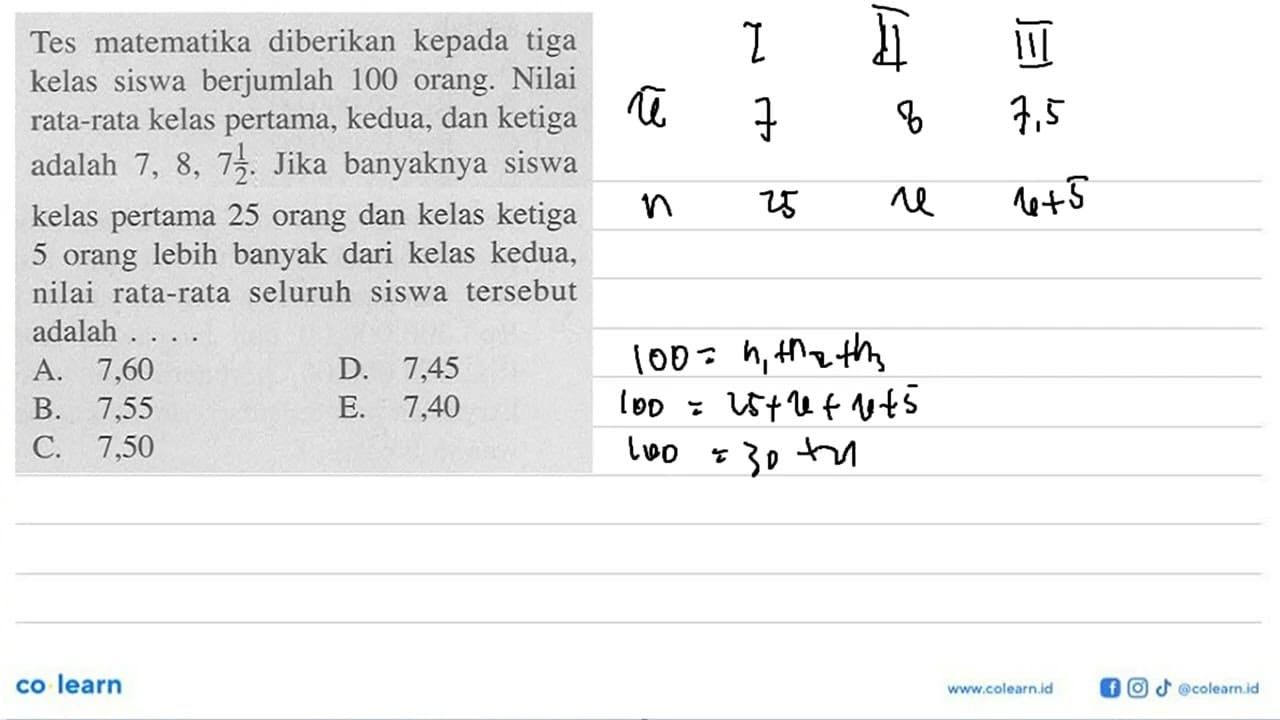 Tes matematika diberikan kepada tiga
kelas siswa berjumlah 100 orang. Nilai
rata-rata kelas pertama, kedua, dan ketiga
adalah 7, 8, 7½. Jika banyaknya siswa
kelas pertama 25 orang dan kelas ketiga
5 orang lebih banyak dari kelas kedua,
nilai rata-rata seluruh siswa tersebut
adalah . . . .
A. 7,60 D. 7,45
B. 7,55 E. 7,40
C. 7,50
I II III
x̄ 7 8 7,5
n 25 x x+5
100 = n₁+n₂+n₃
100 = 25+x+x+5
100 = 30+2x
co learn
www.colearn.id
@colearn.id